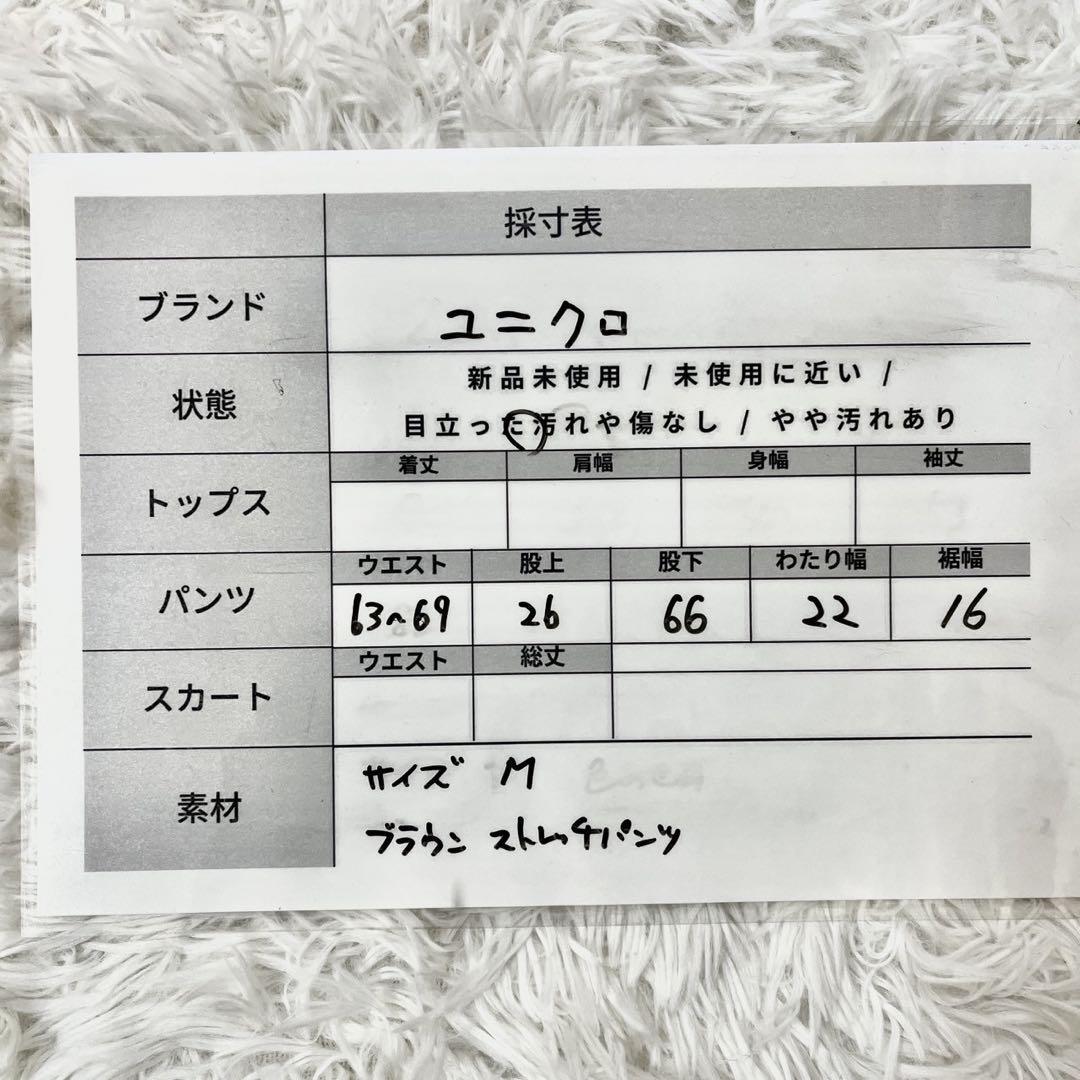 採寸表
ブランド ユニクロ
状態 新品未使用 / 未使用に近い /
目立った汚れや傷なし / やや汚れあり
着丈 肩幅 身幅 袖丈
トップス
ウエスト 股上 股下 わたり幅 裾幅
パンツ 63~69 26 66 22 16
ウエスト 総丈
スカート
素材 サイズ M
ブラウン ストレッチパンツ